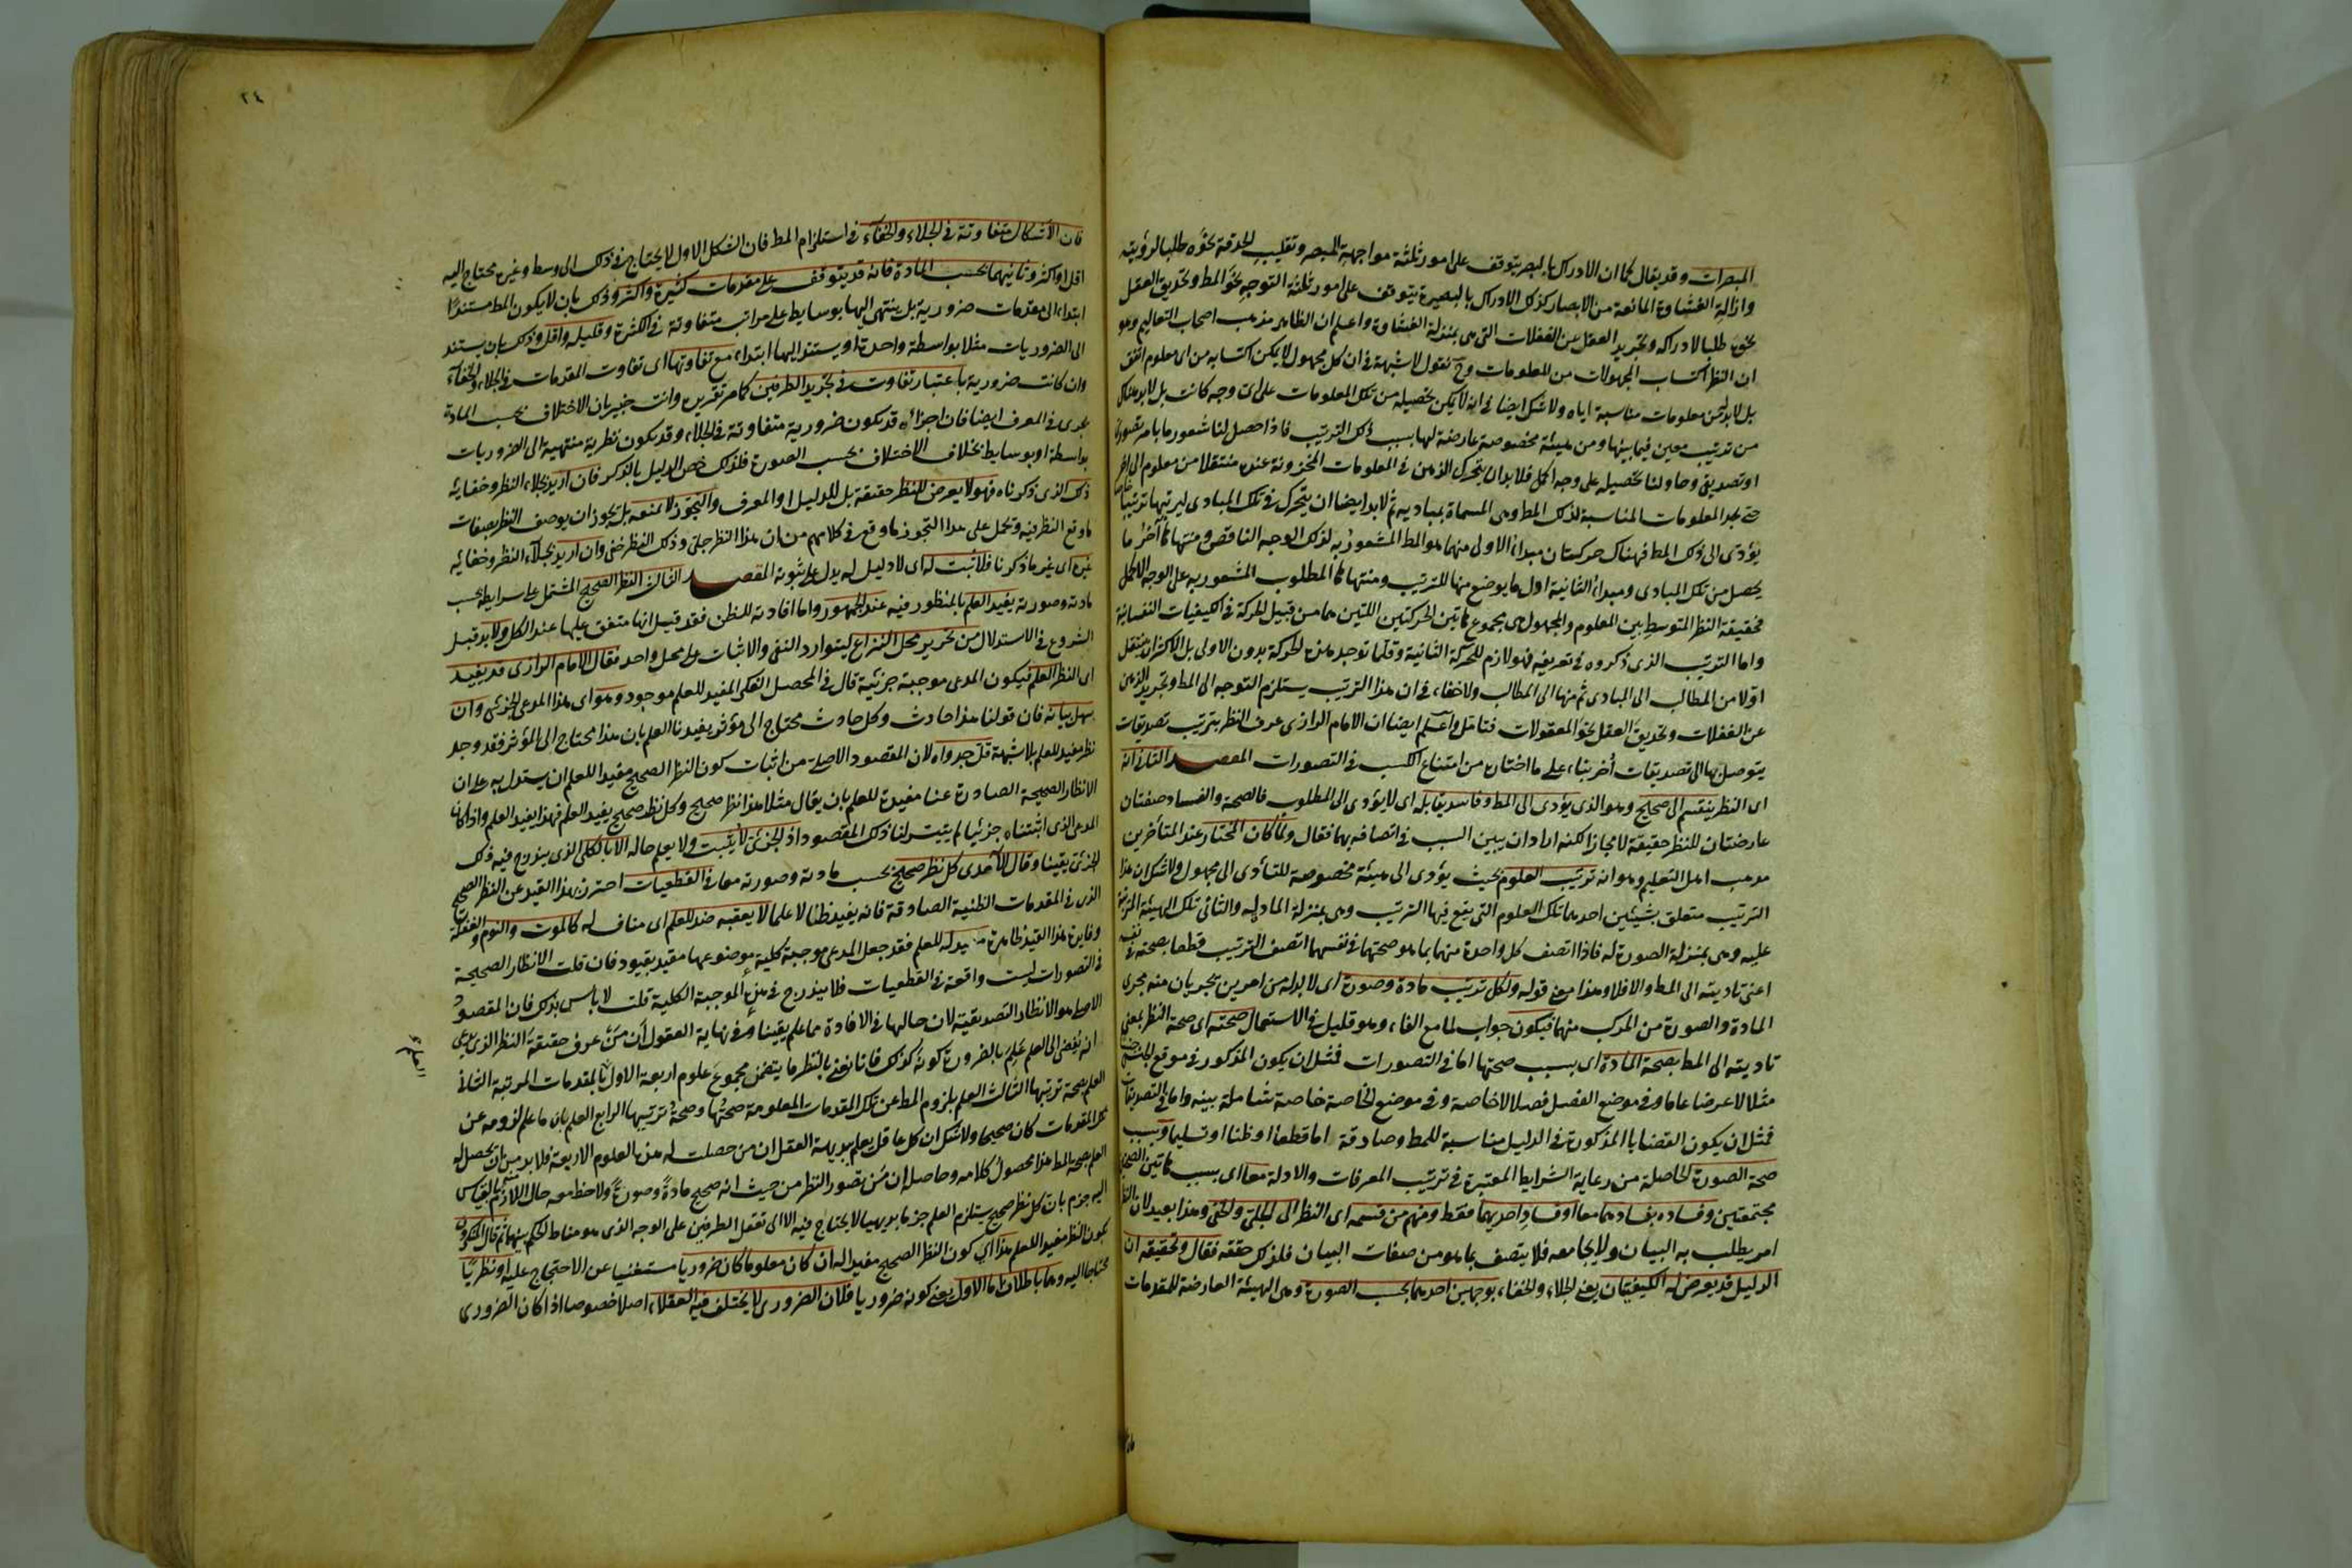 المبصرات وقد يقال كما ان الادراك بالبصر يتوقف على امور ثلثة مواجهة المبصر وتقليب الحدقة نحوه طلبا لرؤيته
وازالة الغشاوة المانعة من الابصار كذلك الادراك بالبصيرة يتوقف على امور ثلثة التوجه نحو المط وتحديق العقل
نحوه طلبا لادراكه وتجريد العقل عن الغفلات التى هى بمنزلة الغشاوة واعلم ان الظاهر مذهب اصحاب التعاليم وهو
ان النظر اكتساب المجهولات من المعلومات وح نقول لا شبهة فى ان كل مجهول لا يمكن اكتسابه من اى معلوم اتفق
بل لابد له من معلومات مناسبة اياه ولا شك ايضا فى انه لا يمكن تحصيله من تلك المعلومات على اى وجه كانت بل لابد هناك
من ترتيب معين فيما بينها ومن هيئة مخصوصة عارضة لها بسبب ذلك الترتيب فاذا حصل لنا شعور ما بامر تصورى
او تصديقى وحاولنا تحصيله على وجه اكمل فلابد ان يتحرك الذهن فى المعلومات المخزونة عنده منتقلا من معلوم الى اخر
حتى يجد المعلومات المناسبة لذلك المط وهى المسماة بمباديه ثم لابد ايضا ان يتحرك فى تلك المبادى ليرتبها ترتيبا خاصا
يؤدى الى ذلك المط فهناك حركتان مبدأ الاولى منهما هو المط المشعور به لذلك الوجه الناقص ومنتهاها آخر ما
يحصل من تلك المبادى ومبدأ الثانية اول ما يوضع منها للترتيب ومنتهاها المطلوب المشعور به على الوجه الاكمل
فحقيقة النظر المتوسط بين المعلوم والمجهول هى مجموع هاتين الحركتين اللتين هما من قبيل الحركة فى الكيفيات النفسانية
واما الترتيب الذى ذكروه فى تعريفه فهو لازم للحركة الثانية وقلما توجد هذه الحركة بدون الاولى بل الاكثر ان ينتقل
اولا من المطالب الى المبادى ثم منها الى المطالب ولا خفاء فى ان هذا الترتيب يستلزم التوجه الى المط وتجريد الذهن
عن الغفلات وتحديق العقل نحو المعقولات فتامل واعلم ايضا ان الامام الرازى عرف النظر بترتيب تصديقات
يتوصل بها الى تصديقات أخر بناء على ما اختاره من امتناع الكسب فى التصورات المقصد الثانى انه
اى النظر ينقسم الى صحيح وهو الذى يؤدى الى المط وفاسد يقابله اى لا يؤدى الى المطلوب فالصحة والفساد صفتان
عارضتان للنظر حقيقة لا مجازا لكنه اراد ان يبين السبب فى اتصافه بهما فقال ولما كان المختار عند المتأخرين
مذهب اهل التعليم وهو انه ترتيب العلوم بحيث يؤدى الى هيئة مخصوصة للتأدى الى مجهول ولا شك ان هذا
الترتيب متعلق بشيئين احدهما تلك العلوم التى يقع فيها الترتيب وهى بمنزلة المادة له والثانى تلك الهيئة المترتبة
عليه وهى بمنزلة الصورة له فاذا اتصف كل واحدة منهما بما هو صحتها فى نفسها اتصف الترتيب قطعا بصحته فى نفسه
اعنى تاديته الى المط والا فلا وهذا معنى قوله ولكل ترتيب مادة وصورة اى لابد له من امرين يجريان منه مجرى
المادة والصورة من المركب منهما فيكون جواب لما مع الفاء وهو قليل فى الاستعمال صحته اى صحة النظر بمعنى
تاديته الى المط بصحة المادة اى بسبب صحتها اما فى التصورات فمثل ان يكون المذكور فى موقع الجنس جنسا
مثلا لا عرضا عاما وفى موضع الفصل فصلا لا خاصة وفى موضع الخاصة خاصة شاملة بينة واما فى التصديقات
فمثل ان يكون القضايا المذكورة فى الدليل مناسبة للمط وصادقة اما قطعا او ظنا او تسليما وبسبب
صحة الصورة الحاصلة من رعاية الشرايط المعتبرة فى ترتيب المعرفات والادلة معا اى بسبب هاتين الصحتين
مجتمعتين وفساده بفسادهما معا او فساد احديهما فقط ومنهم من قسمه اى النظر الى الجلى والخفى وهذا بعيد لان النظر
امر يطلب به البيان ولا يجامعه فلا يتصف بما هو من صفات البيان فلذلك حققه فقال وتحقيقه ان
الدليل قد يعرض له الكيفيتان يعنى الجلاء والخفاء بوجهين احدهما بحسب الصورة وهى الهيئة العارضة للمقدمات
٢٤
فان الاشكال متفاوتة فى الجلاء والخفاء فى استلزام المط فان الشكل الاول لا يحتاج فى ذلك الى وسط وغيره محتاج اليه
اقل او اكثر وثانيهما بحسب المادة فانه قد يتوقف على مقدمات كثيرة واكثر وذلك بان لا يكون المط مستندا
ابتداء الى مقدمات ضرورية بل ينتهى اليها بوسايط على مراتب متفاوتة فى الكثرة وقليلة واقل وذلك بان يستند
الى الضروريات مثلا بواسطة واحدة او يستند اليها ابتداء مع تفاوتها اى تفاوت المقدمات فى الجلاء والخفاء
وان كانت ضرورية باعتبار تفاوت فى تجريد الطرفين كما مر تقريره وانت خبير بان الاختلاف بحسب المادة
يجرى فى المعرف ايضا فان اجزاءه قد يكون ضرورية متفاوتة فى الجلاء وقد يكون نظرية منتهية الى الضروريات
بواسطة او بوسايط بخلاف الاختلاف بحسب الصورة فلذلك خص الدليل بالذكر فان اريد بجلاء النظر وخفايه
ذلك الذى ذكرناه فهو لا يعرض للنظر حقيقة بل للدليل او المعرف والتجوز لا يمنعه بل يجوز ان يوصف النظر بصفات
ما وقع النظر فيه وتحمل على هذا التجوز ما وقع فى كلامهم من ان هذا النظر جلى وذلك النظر خفى وان اريد بجلاء النظر وخفائه
غيره اى غير ما ذكرنا فلا ثبت له اى لا دليل له يدل على ثبوته المقصد الثالث النظر الصحيح المشتمل على شرايطه بحسب
مادته وصورته يفيد العلم بالمنظور فيه عند الجمهور واما افادته للظن فقد قيل انها متفق عليها عند الكل ولابد قبل
الشروع فى الاستدلال من تحرير محل النزاع ليتوارد النفى والاثبات على محل واحد فقال الامام الرازى قد يفيد
اى النظر العلم فيكون المدعى موجبة جزئية قال فى المحصل الفكر المفيد للعلم موجود وهو اى هذا المدعى الجزئى وان
سهل بيانه فان قولنا هذا حادث وكل حادث محتاج الى مؤثر يفيدنا العلم بان هذا محتاج الى المؤثر فقد وجد
نظر مفيد للعلم بلا شبهة قل جدواه لان المقصود الاصلى من اثبات كون النظر الصحيح مفيدا للعلم ان يستدل به على ان
الانظار الصحيحة الصادرة عنا مفيدة للعلم بان يقال مثلا هذا نظر صحيح وكل نظر صحيح يفيد العلم فهذا يفيد العلم واذا كان
المدعى الذى اثبتناه جزئيا لم يتيسر لنا ذلك المقصود اذ الجزئى لا يثبت ولا يعلم حاله الا بالكلى الذى يندرج فيه ذلك
الجزئى يقينا وقال الآمدى كل نظر صحيح بحسب مادته وصورته معا فى القطعيات احترز بهذا القيد عن النظر الصحيح
الذى فى المقدمات الظنية الصادقة فانه يفيد ظنا لا علما لا يعقبه ضد للعلم اى مناف له كالموت والنوم والغفلة
وفايدة هذا القيد ظاهرة مفيد له للعلم فقد جعل المدعى موجبة كلية موضوعها مقيد بقيود فان قلت الانظار الصحيحة
فى التصورات ليست واقعة فى القطعيات فلا يندرج فى هذه الموجبة الكلية قلت لا باس بذلك فان المقصود
الاصلى هو الانظار التصديقية لان حالها فى الافادة مما علم يقينا وفى نهاية العقول ان من عرف حقيقة النظر الذى يدعى
انه يفضى الى العلم علم بالضرورة كونه كذلك فانا نعنى بالنظر ما يتضمن مجموع علوم اربعة الاول العلم بالمقدمات المرتبة الثانى
العلم بصحة ترتيبها الثالث العلم بلزوم المط عن تلك المقدمات المعلومة صحتها وصحة ترتيبها الرابع العلم بان ما علم لزومه عن
تلك المقدمات كان صحيحا ولا شك ان كل عاقل يعلم ببديهة العقل ان من حصلت له هذه العلوم الاربعة فلابد من ان يحصل له
العلم بصحة المط هذا محصول كلامه وحاصله ان من تصور النظر من حيث انه صحيح مادة وصورة ولاحظ معه حال اللازم بالقياس
اليه جزم بان كل نظر صحيح يستلزم العلم جزما بديهيا لا يحتاج فيه الا الى تعقل الطرفين على الوجه الذى هو مناط الحكم بينهما ثم قال المنكرون
كون النظر مفيدا للعلم هذا اى كون النظر الصحيح مفيدا له ان كان معلوما كان ضروريا مستغنيا عن الاحتجاج عليه او نظريا
محتاجا اليه وهما باطلان اما الاول يعنى كونه ضروريا فلان الضرورى لا يختلف فيه العقلاء اصلا خصوصا اذا كان الضرورى